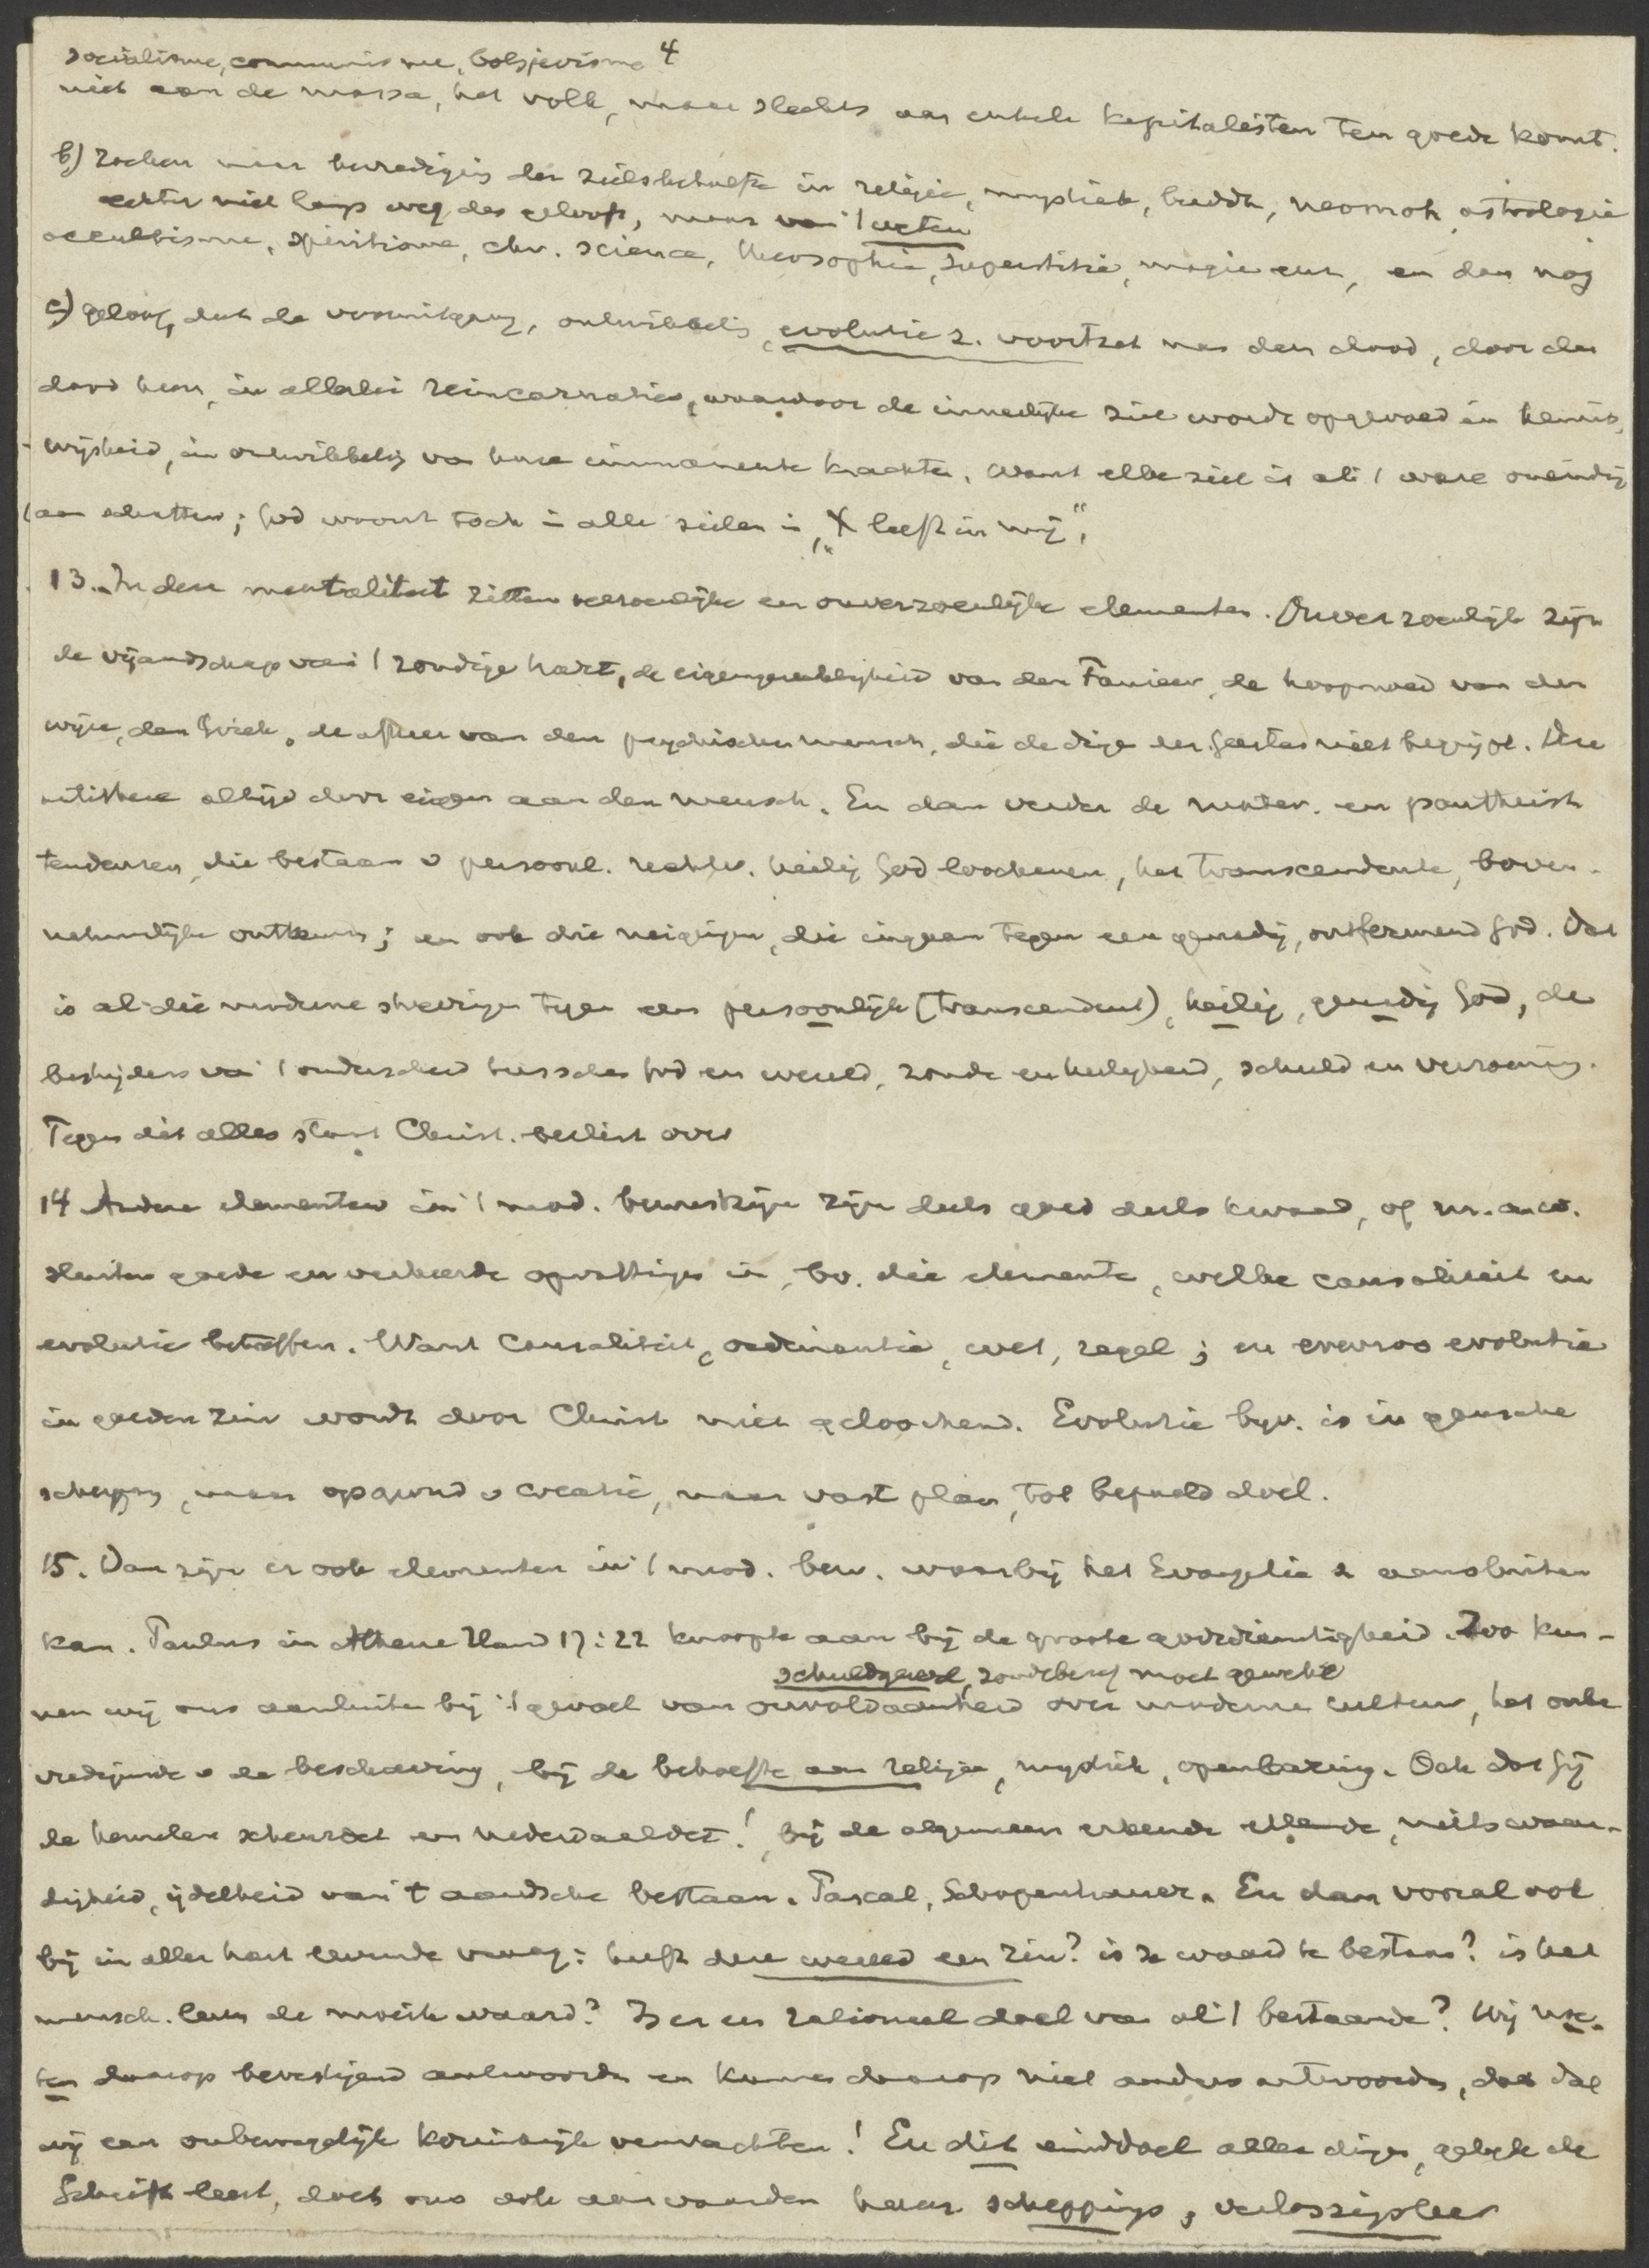 4
socialisme, communisme, bolsjevisme
niet aan de massa, het volk, maar slechts aan enkele kapitalisten ten goede komt.
b) zoeken naar bevrediging der zielsbehoefte in religie, mystiek, buddh, neomoh, astrologie
echter niet langs weg des geloofs, maar van 't weten
occultisme, spiritisme, chr. science, theosophie, superstitie, magie enz, en dan nog
c) geloof, dat de vooruitgang, ontwikkeling, evolutie z. voortzet na den dood, door den
dood heen, in allerlei reincarnaties, waardoor de innerlijke ziel wordt opgevoed in kennis,
wijsheid, in ontwikkeling van hare immanente krachten. Want elke ziel is als 't ware oneindig
aan schatten; God woont toch in alle zielen in, "X leeft in mij",
13. In deze mentaliteit zitten verzoenlijke en onverzoenlijke elementen. Onverzoenlijk zijn
de vijandschap van 't zondige hart, de eigengerechtigheid van den Farizeer, de hoogmoed van den
wijze, den Griek, de afkeer van den psychischen mensch, die de dingen des Geestes niet begrijpt. Deze
altijd door eigen aan den mensch. En dan verder de mater. en pantheist
tendenzen, die bestaan v persoonl. rechtv. heilig God loochenen, het transcendente, boven-
natuurlijke ontkennen; en ook die neigingen, die ingaan tegen een genadig, ontfermend God. Dat
is al die moderne strevingen tegen een persoonlijk (transcendent), heilig, genadig God, de
bestrijders van 't onderscheid tusschen God en wereld, zonde en heiligheid, schuld en verzoening.
Tegen dit alles staat Christ. beslist over
14 Andere elementen in 't mod. bewustzijn zijn deels goed deels kwaad, of m. a. w.
sluiten goede en verkeerde opvattingen in, bv. die elementen, welke causaliteit en
evolutie betreffen. Want Causaliteit, ordinantie, wet, regel; en evenzoo evolutie
in goeden zin wordt door Christ niet geloochend. Evolutie bijv. is in gansche
schepping, maar op grond v creatie, naar vast plan, tot bepaald doel.
15. Dan zijn er ook elementen in 't mod. bew. waarbij het Evangelie z aansluiten
kan. Paulus in Athene Hand 17:22 knoopte aan bij de groote godsdienstigheid. Zoo kun-
schuldgevoel, zondebesef moet gewekt
nen wij ons aansluiten bij 't gevoel van onvoldaanheid over moderne cultuur, het onbe
vredigende v de beschaving, bij de behoefte aan religie, mystiek, openbaring. Och dat Gij
de hemelen scheurdet en nederdaaldet!, bij de algemeen erkende ellende, nietswaar-
digheid, ijdelheid van 't aardsche bestaan. Pascal, Schopenhauer. En dan vooral ook
bij in aller hart levende vraag: heeft deze wereld een zin? is ze waard te bestaan? is het
mensch. leven de moeite waard? Is er een rationeel doel van al 't bestaande? Wij moe-
ten daarop bevestigend antwoorden en kunnen daarop niet anders antwoorden, dan dat
wij een onbewegelijk koninkrijk verwachten! En dit einddoel aller dingen, gelijk de
Schrift leert, doet ons ook aanvaarden hare scheppings, verlossingsleer